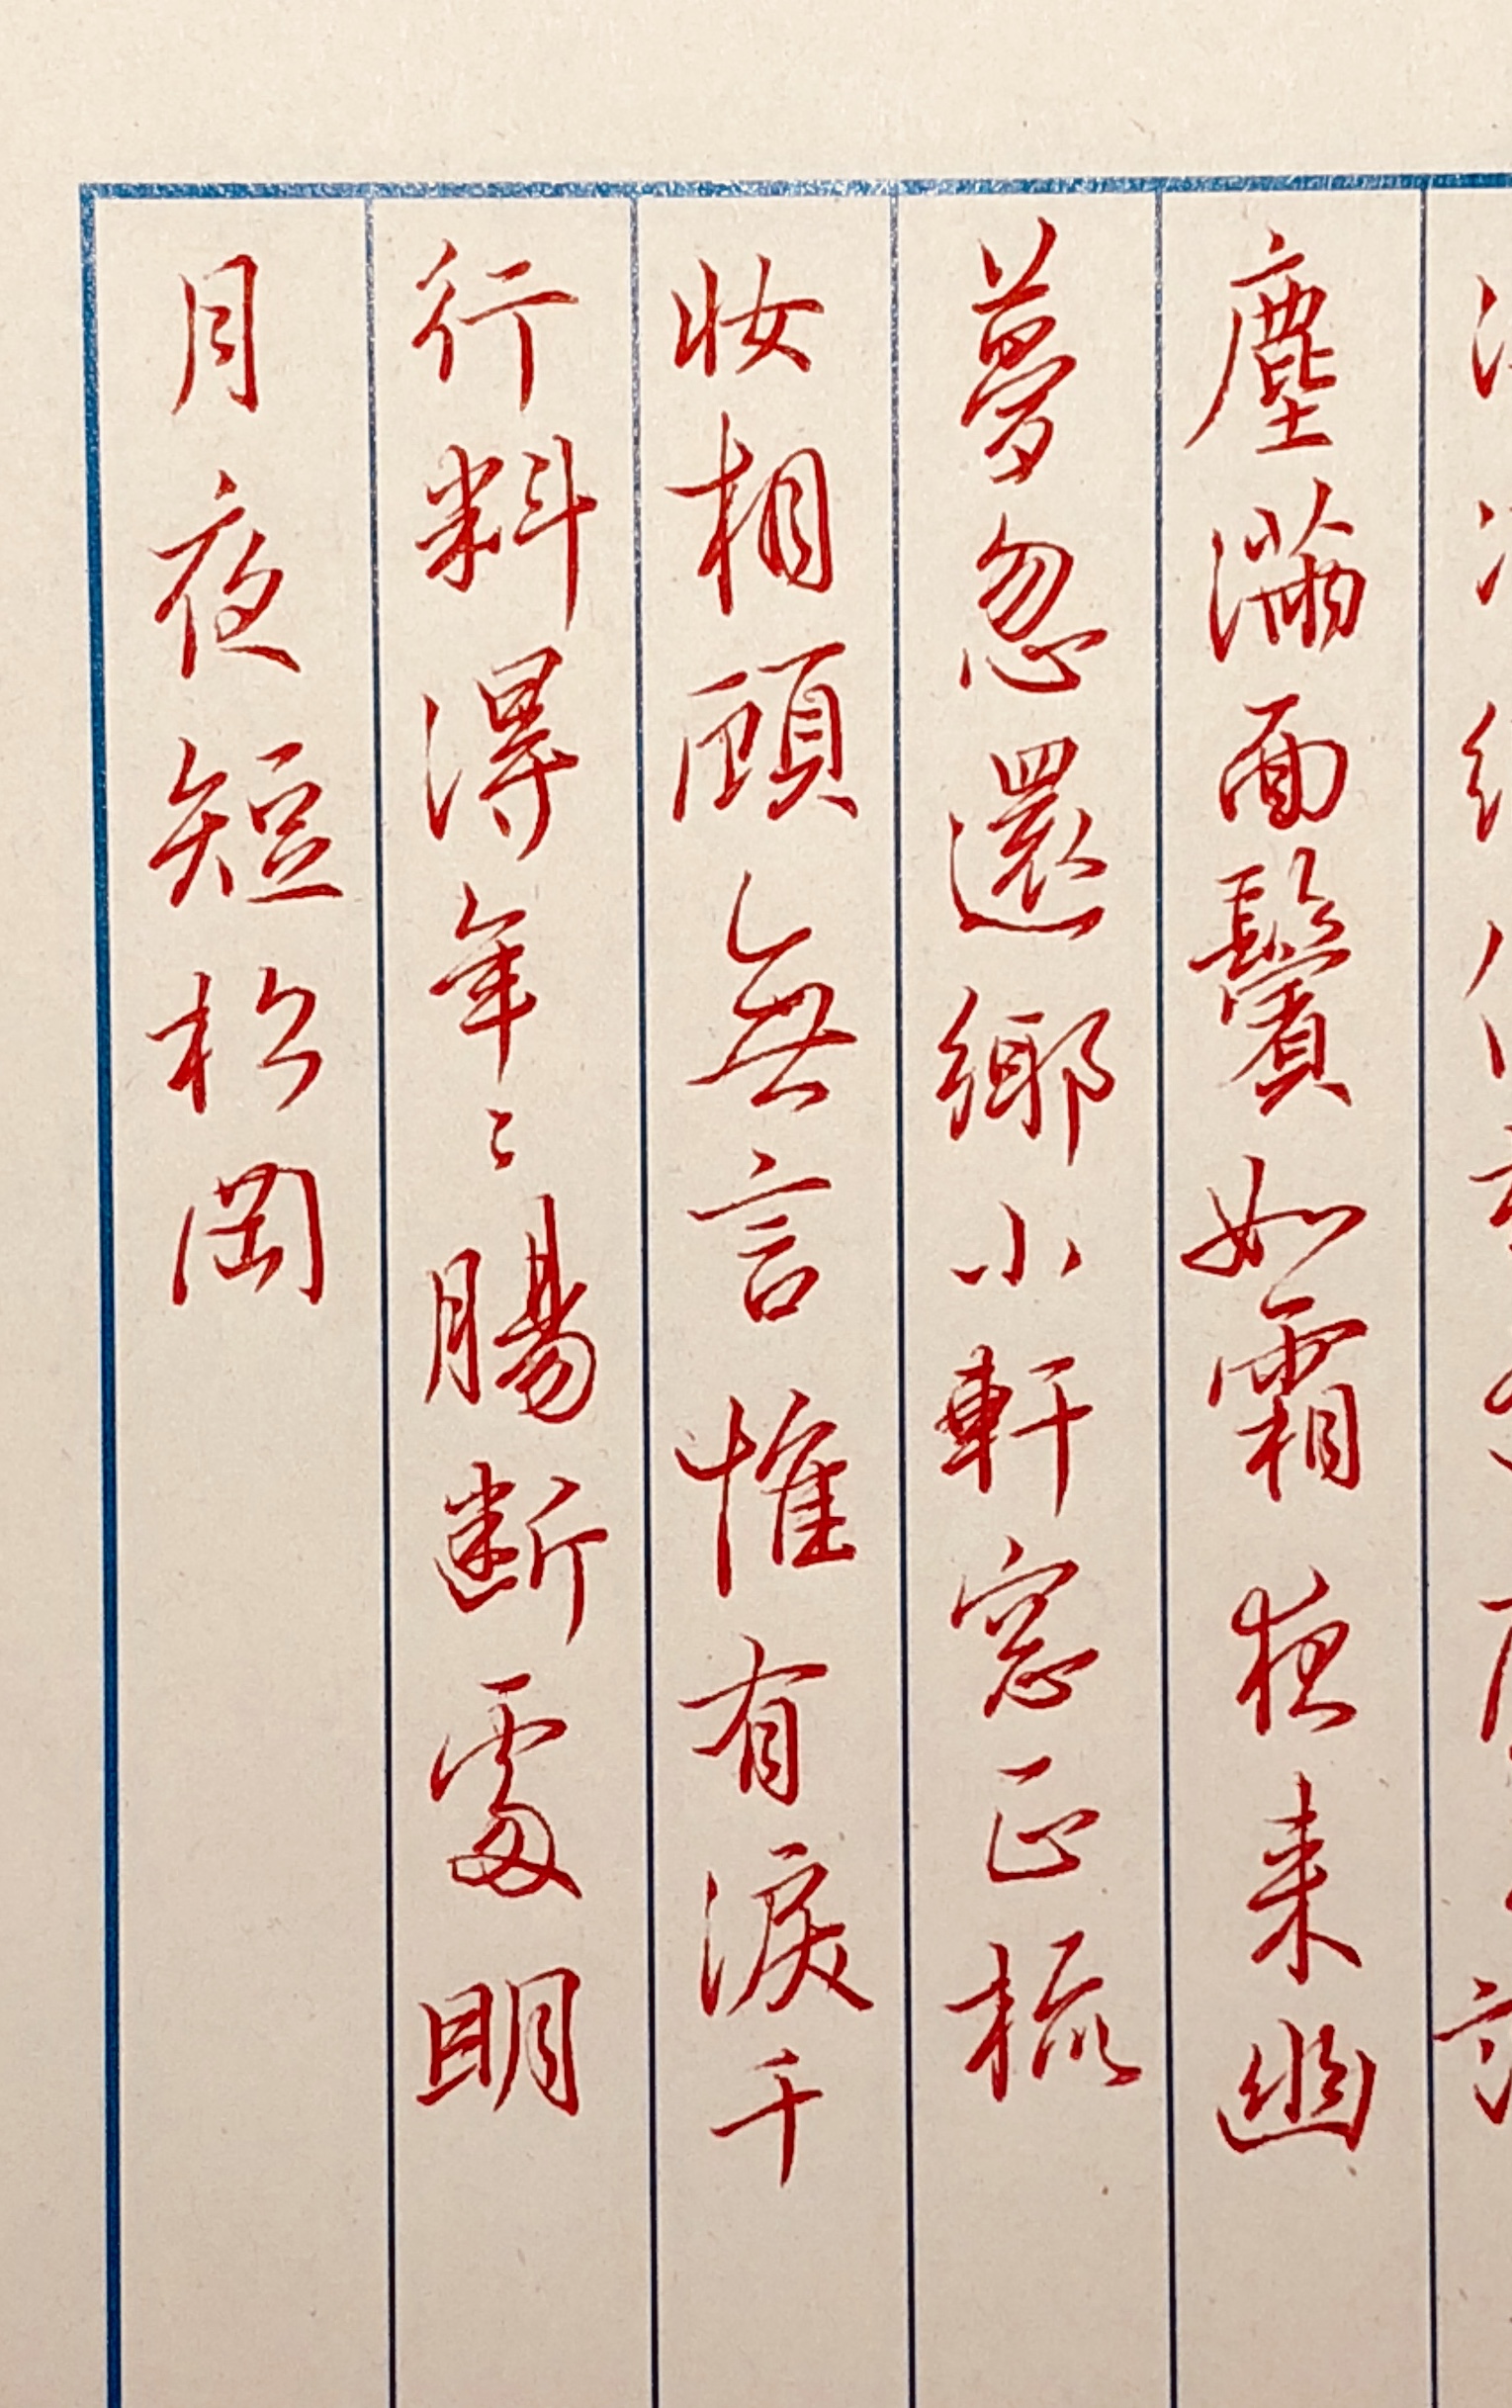 塵滿面鬢如霜夜来幽
夢忽還鄉小軒窓正梳
妝相顧無言惟有淚千
行料得年〻腸斷處明
月夜短松岡